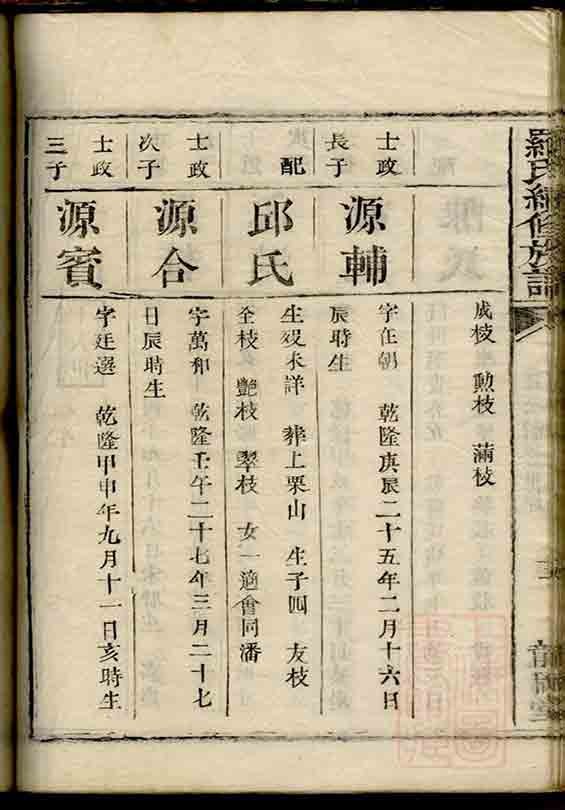 羅氏續修族譜
成枝 勲枝 滿枝
士政
長子
源輔
字在朝 乾隆庚辰二十五年二月十六日
辰時生
配
邱氏
生歿未詳 葬上栗山 生子四 友枝
全枝 艷枝 翠枝 女一適會同潘
士政
次子
源合
字萬和 乾隆壬午二十七年三月二十七
日辰時生
士政
三子
源賓
字廷選 乾隆甲申年九月十一日亥時生